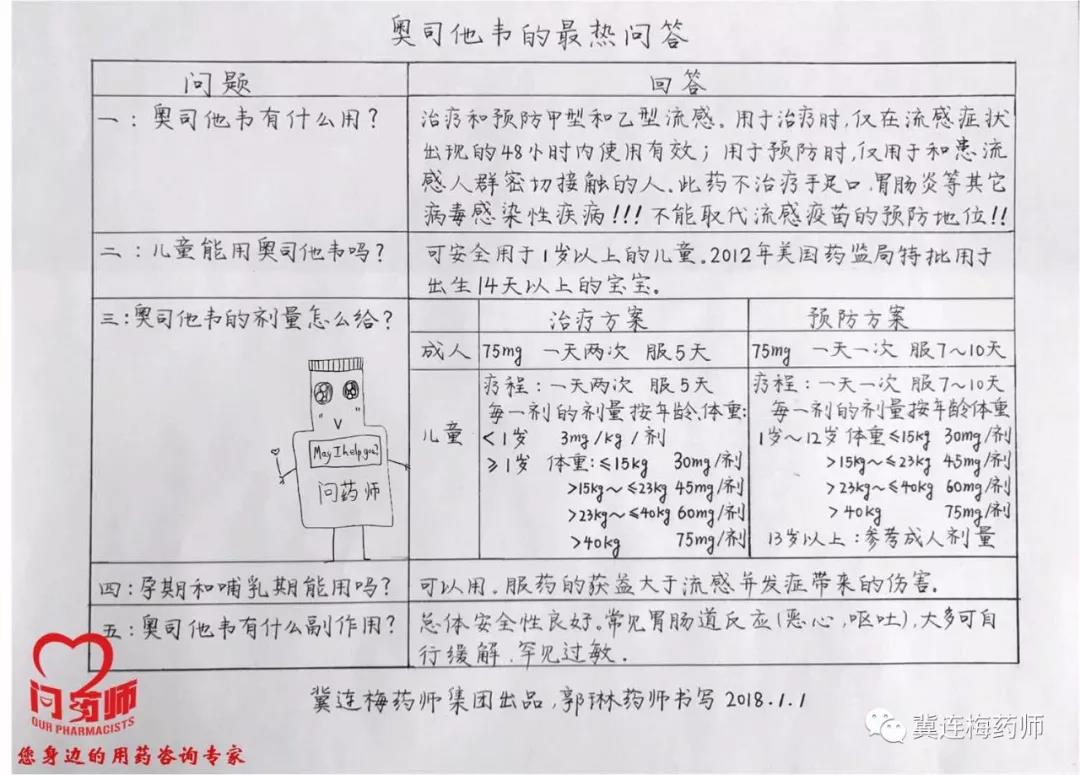 奥司他韦的最热问答
问题
回答
一：奥司他韦有什么用？
治疗和预防甲型和乙型流感。用于治疗时,仅在流感症状
出现的48小时内使用有效；用于预防时,仅用于和患流
感人群密切接触的人。此药不治疗手足口,胃肠炎等其它
病毒感染性疾病!!!不能取代流感疫苗的预防地位!!
二：儿童能用奥司他韦吗？
可安全用于1岁以上的儿童。2012年美国药监局特批用于
出生14天以上的宝宝。
三:奥司他韦的剂量怎么给？
治疗方案
预防方案
成人
75mg 一天两次 服5天
75mg 一天一次 服7～10天
儿童
疗程：一天两次 服5天
每一剂的剂量按年龄.体重:
<1岁 3mg/kg/剂
≥1岁 体重:≤15kg 30mg/剂
>15kg～≤23kg 45mg/剂
>23kg～≤40kg 60mg/剂
>40kg 75mg/剂
疗程：一天一次 服7～10天
每一剂的剂量按年龄体重
1岁～12岁体重≤15kg 30mg/剂
>15kg～≤23kg 45mg/剂
>23kg～≤40kg 60mg/剂
>40kg 75mg/剂
13岁以上：参考成人剂量
May I help you?
问药师
四:孕期和哺乳期能用吗？
可以用。服药的获益大于流感并发症带来的伤害.
五:奥司他韦有什么副作用？
总体安全性良好。常见胃肠道反应(恶心,呕吐),大多可自
行缓解,罕见过敏.
冀连梅药师集团出品,郭琳药师书写2018.1.1
问药师
OUR PHARMACISTS
您身边的用药咨询专家
冀连梅药师